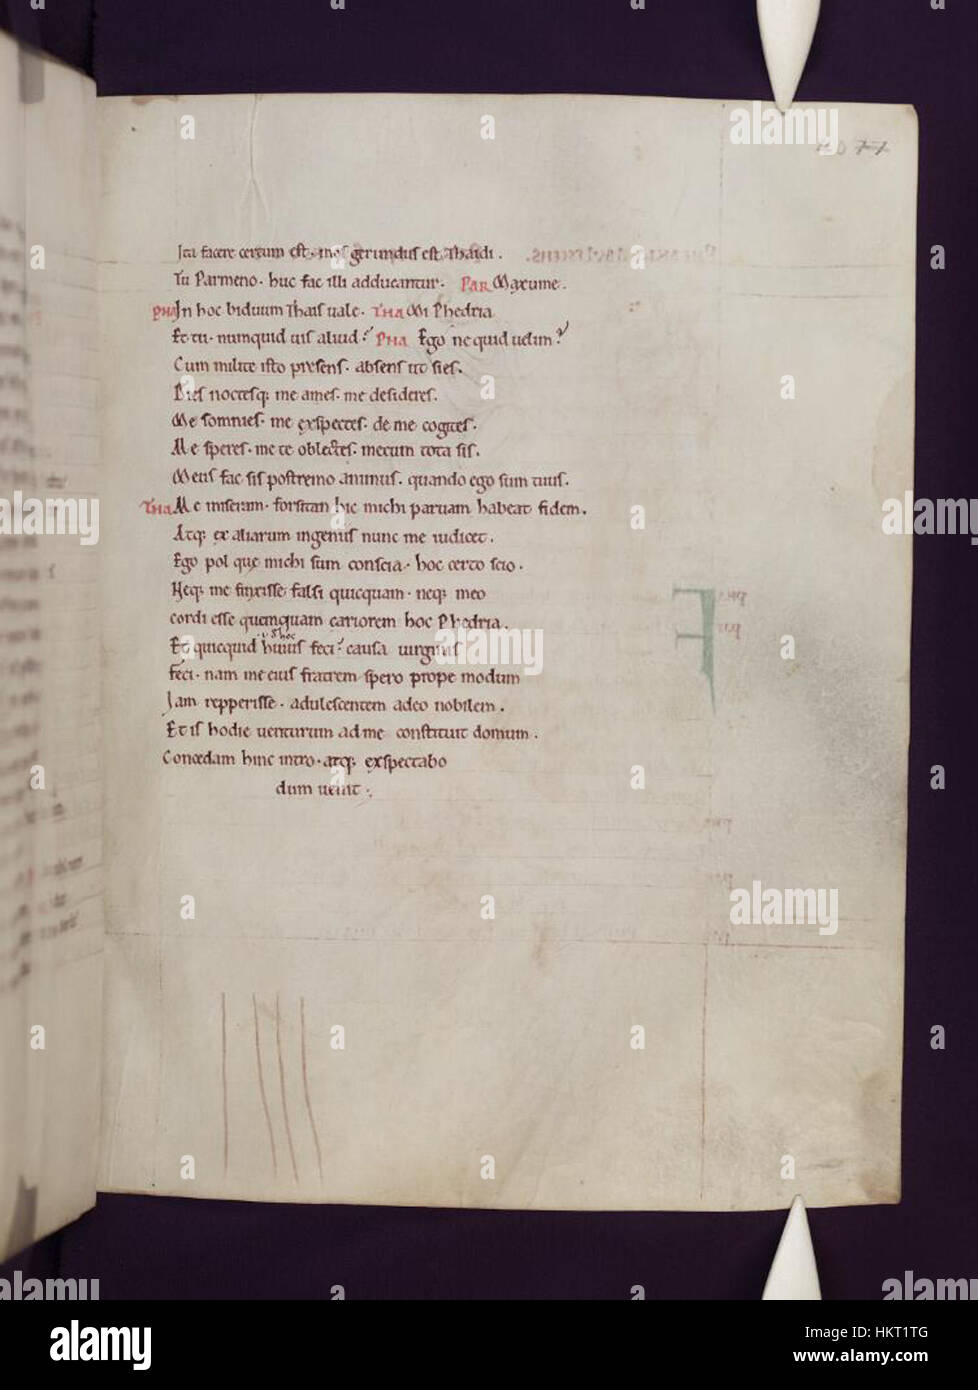 Ita facere certum est. mos gerundus est Thaidi.
Tu Parmeno. huc fac illi adducantur. PAR Maxume.
PHA In hoc biduum Thais vale. THA Mi Phedria
Et tu. numquid uis aliud? PHA Ego ne quid uelim?
Cum milite isto presens. absens ut sies.
Dies noctesq; me ames. me desideres.
Me somnies. me exspectes. de me cogites.
Me speres. me te oblectes. mecum tota sis.
Meus fac sis postremo animus. quando ego sum tuus.
THA Me miseram. forsitan hic michi paruam habeat fidem.
Atq; ex aliarum ingeniis nunc me iudicet.
Ego pol que michi sum conscia. hoc certo scio.
Neq; me finxisse falsi quicquam. neq; meo
cordi esse quemquam cariorem hoc Phedria.
Et quicquid huius feci? causa uirginis
feci. nam me eius fratrem spero prope modum
Iam repperisse. adulescentem adeo nobilem.
Et is hodie uenturum ad me constituit domum.
Concedam hinc intro. atq; exspectabo
dum uenit.
alamy
Image ID: HKT1TG
www.alamy.com